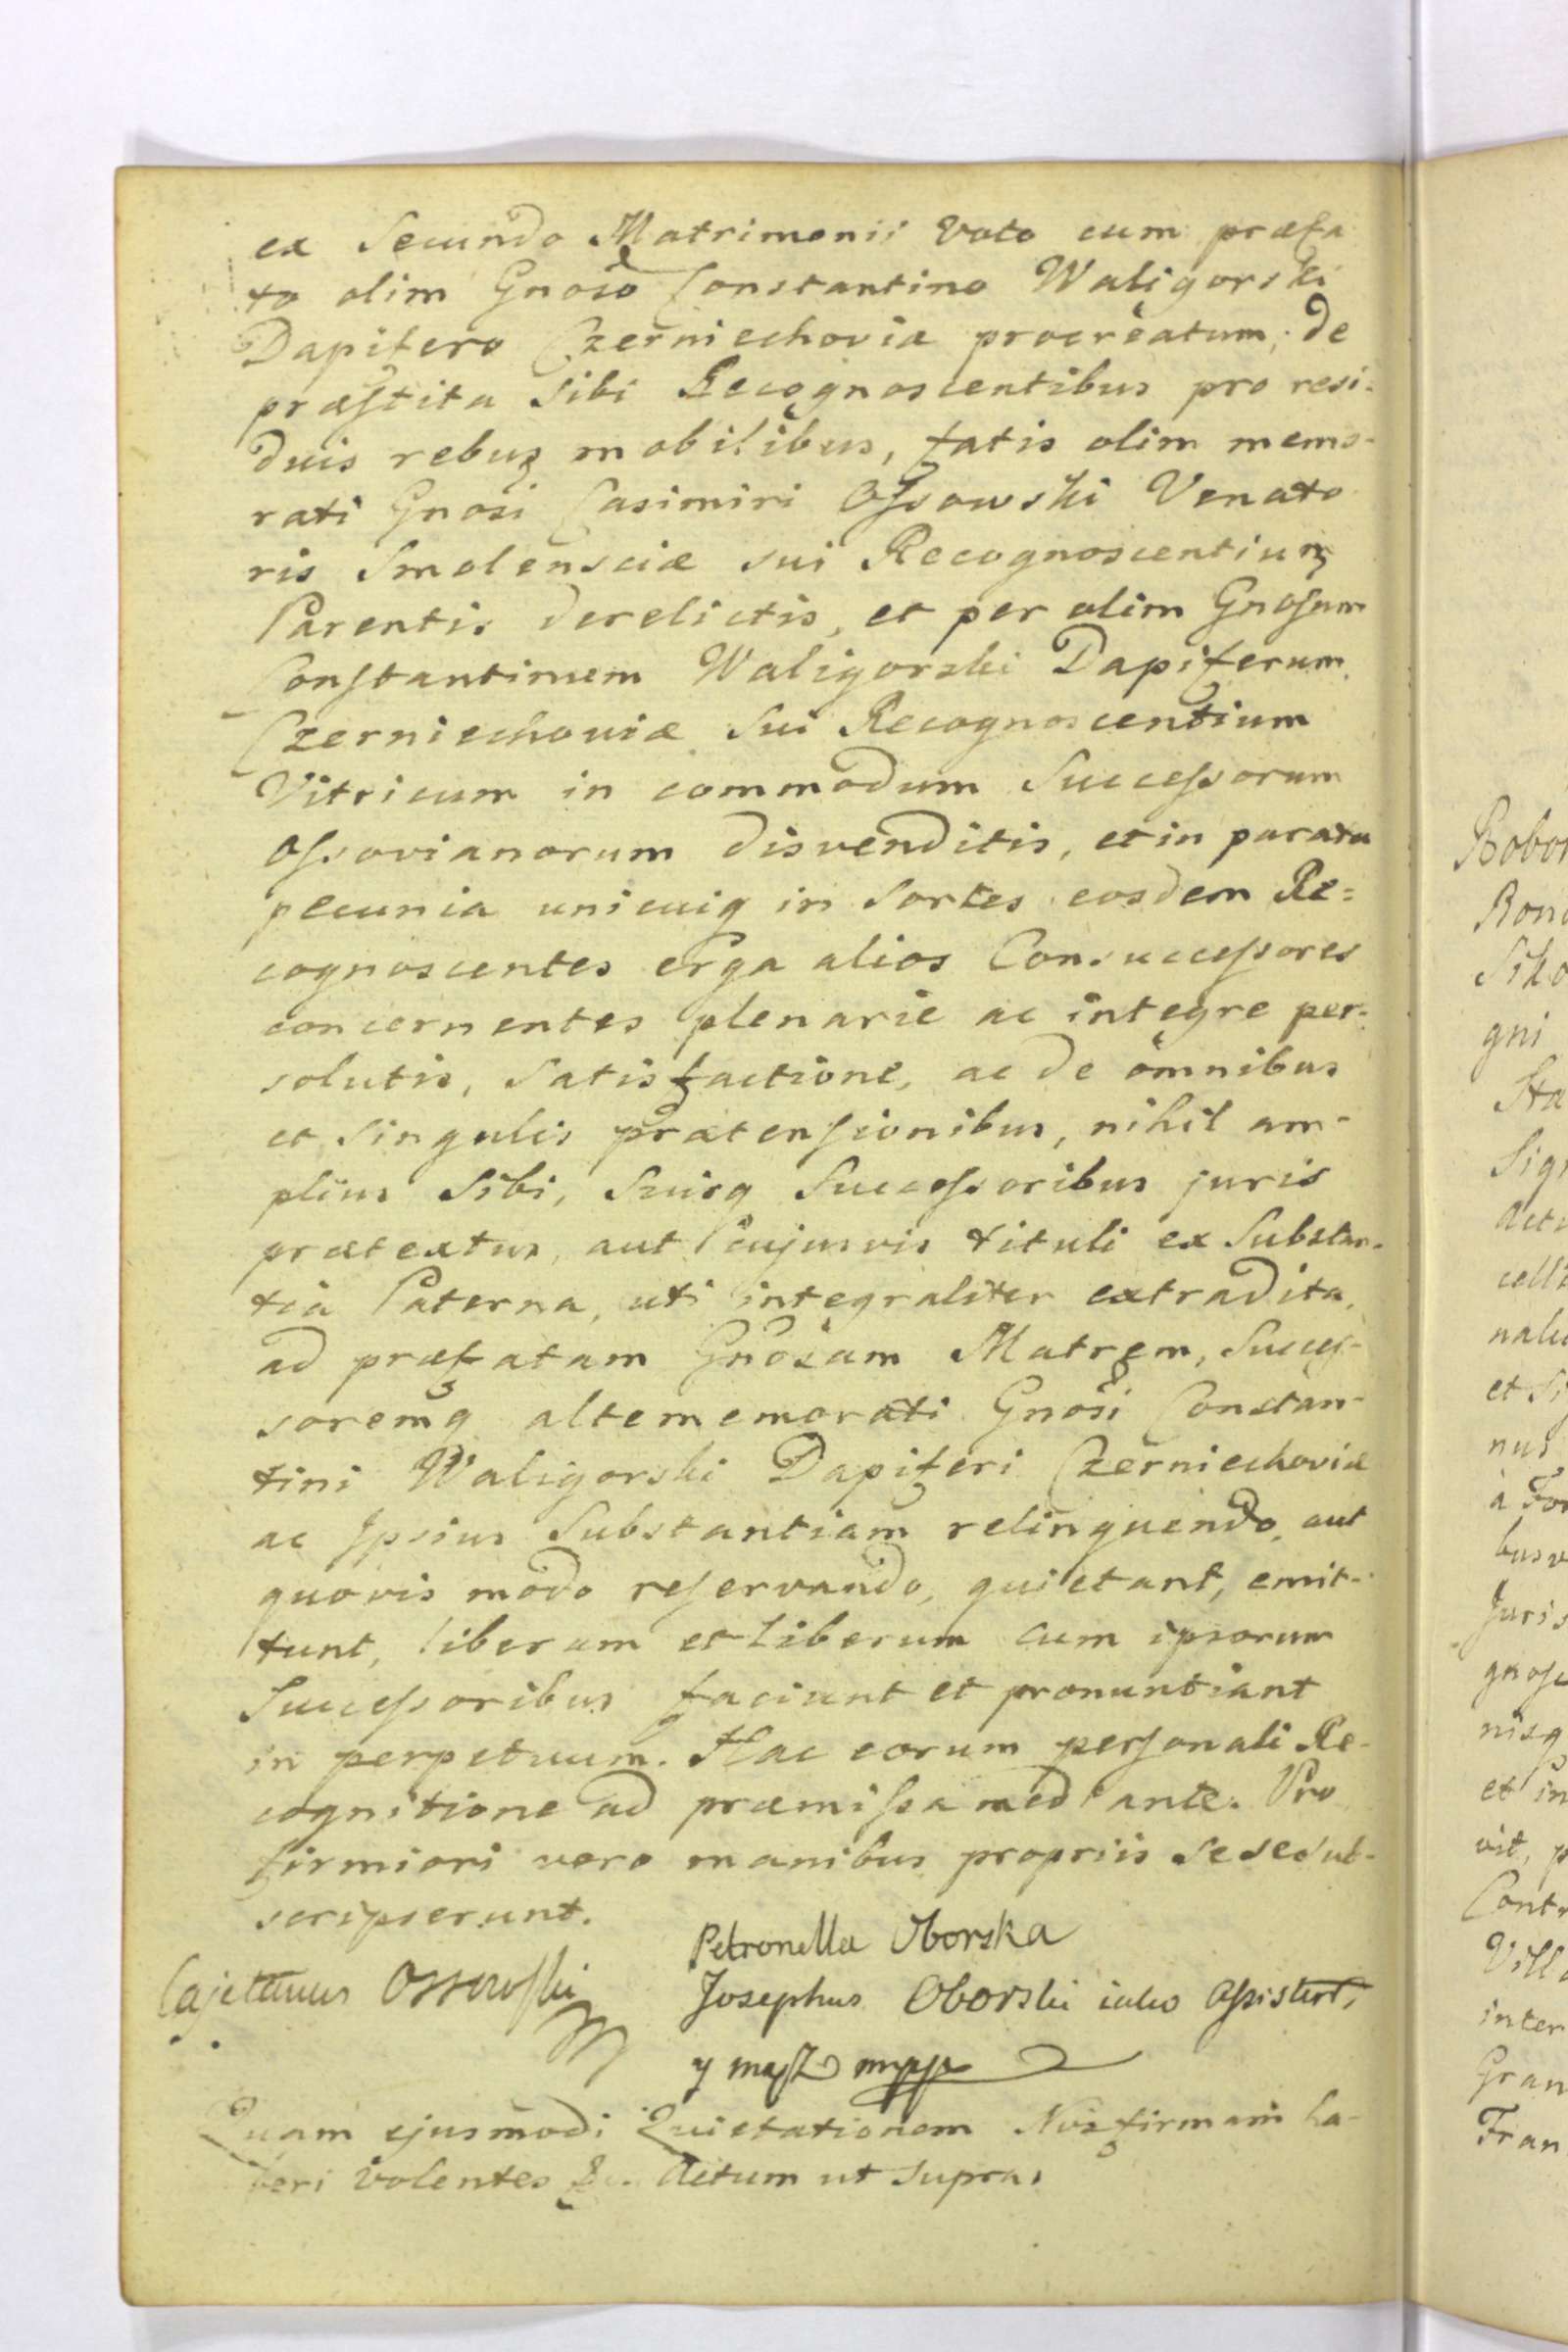 ex Secundo Matrimonii Voto cum præfa
to olim Gnoso Constantino Waligorski
Dapifero Czerniechoviæ procreatum, de
præstita Sibi Recognoscentibus pro resi-
duis rebus mobilibus, fatis olim memo-
rati Gnosi Casimiri Ossowski Venato
ris Smolensciæ sui Recognoscentium
Parentis derelictis, et per olim Gnosum
Constantinum Waligorski Dapiferum
Czerniechoviæ Sui Recognoscentium
Vitricum in commodum Successorum
Ossovianorum disvenditis, et in parata
pecunia unicuiq in Sortes eosdem Re=
cognoscentes erga alios Consuccessores
concernentes plenarie ac integre per-
solutis, Satisfactione, ac de omnibus
et Singulis prætensionibus, nihil am-
plius Sibi, Suisq Successoribus juris
prætextus, aut cujusvis tituli ex Substan-
tia Paterna, uti integraliter extradita,
ad præfatam Gnosam Matrem, Succes-
soremq altememorati Gnosi Constan-
tini Waligorski Dapiferi Czerniechoviæ
ac Ipsius Substantiam relinquendo, aut
quovis modo reservando, quietant, emit-
tunt, liberam et liberum cum ipsorum
Successoribus faciunt et pronuntiant
in perpetuum. Hac eorum personali Re-
cognitione ad præmissa mediante. Pro
firmiori vero manibus propriis Sese Sub-
scripserunt.
Petronella Oborska
Cajetanus Ossowski
Josephus Oborski iako Assistent,
y mąż mpp
Quam ejusmodi Quietationem Nos firmam ha-
beri Volentes &c. Actum ut Supra.
Robor
Rono
Siko
gni
Sta
Sign
acti
cell
nalu
et Si
nus
à For
busv
Juris
gnosc
nisq
et in
vit, p
Contr
Villa
inter
Gran
Fran